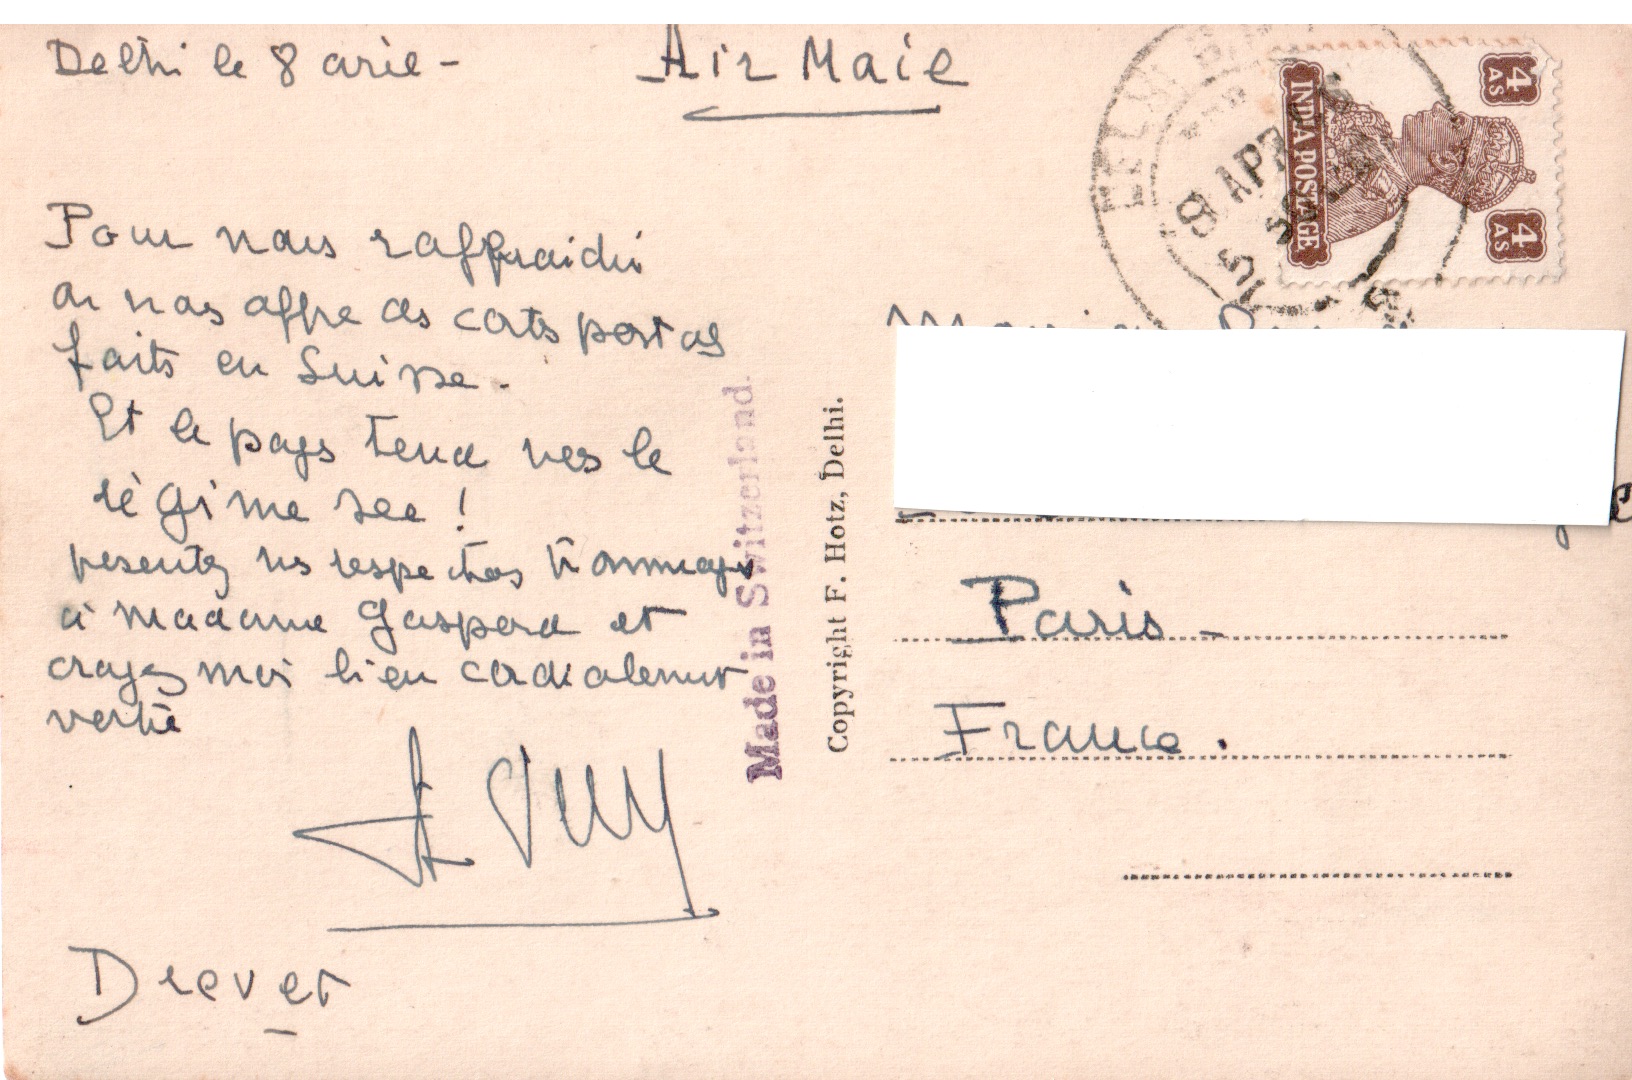 Delhi le 8 avril -
Air Mail
4 AS
INDIA POSTAGE
4 AS
DELHI
8 APR
Pour nous raffraichir
on nous offre des cartes postales
faites en Suisse.
Et le pays tend vers le
régime sec !
presentez mes respectueux hommages
à madame Gaspard et
croyez moi bien cordialement
votre
Drevet
Made in Switzerland.
Copyright F. Hotz, Delhi.
Paris -
France.